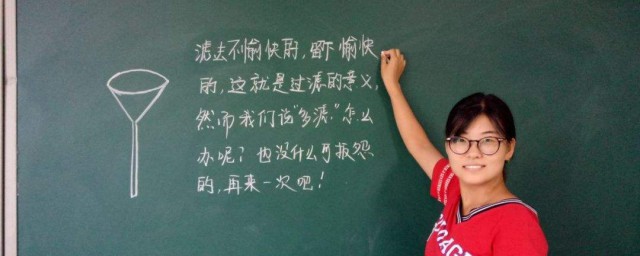 滤去不愉快的,留下愉快
的,这就是过滤的意义,
然而我们“多滤”怎么
办呢?也没什么可报怨
的,再来一次吧!